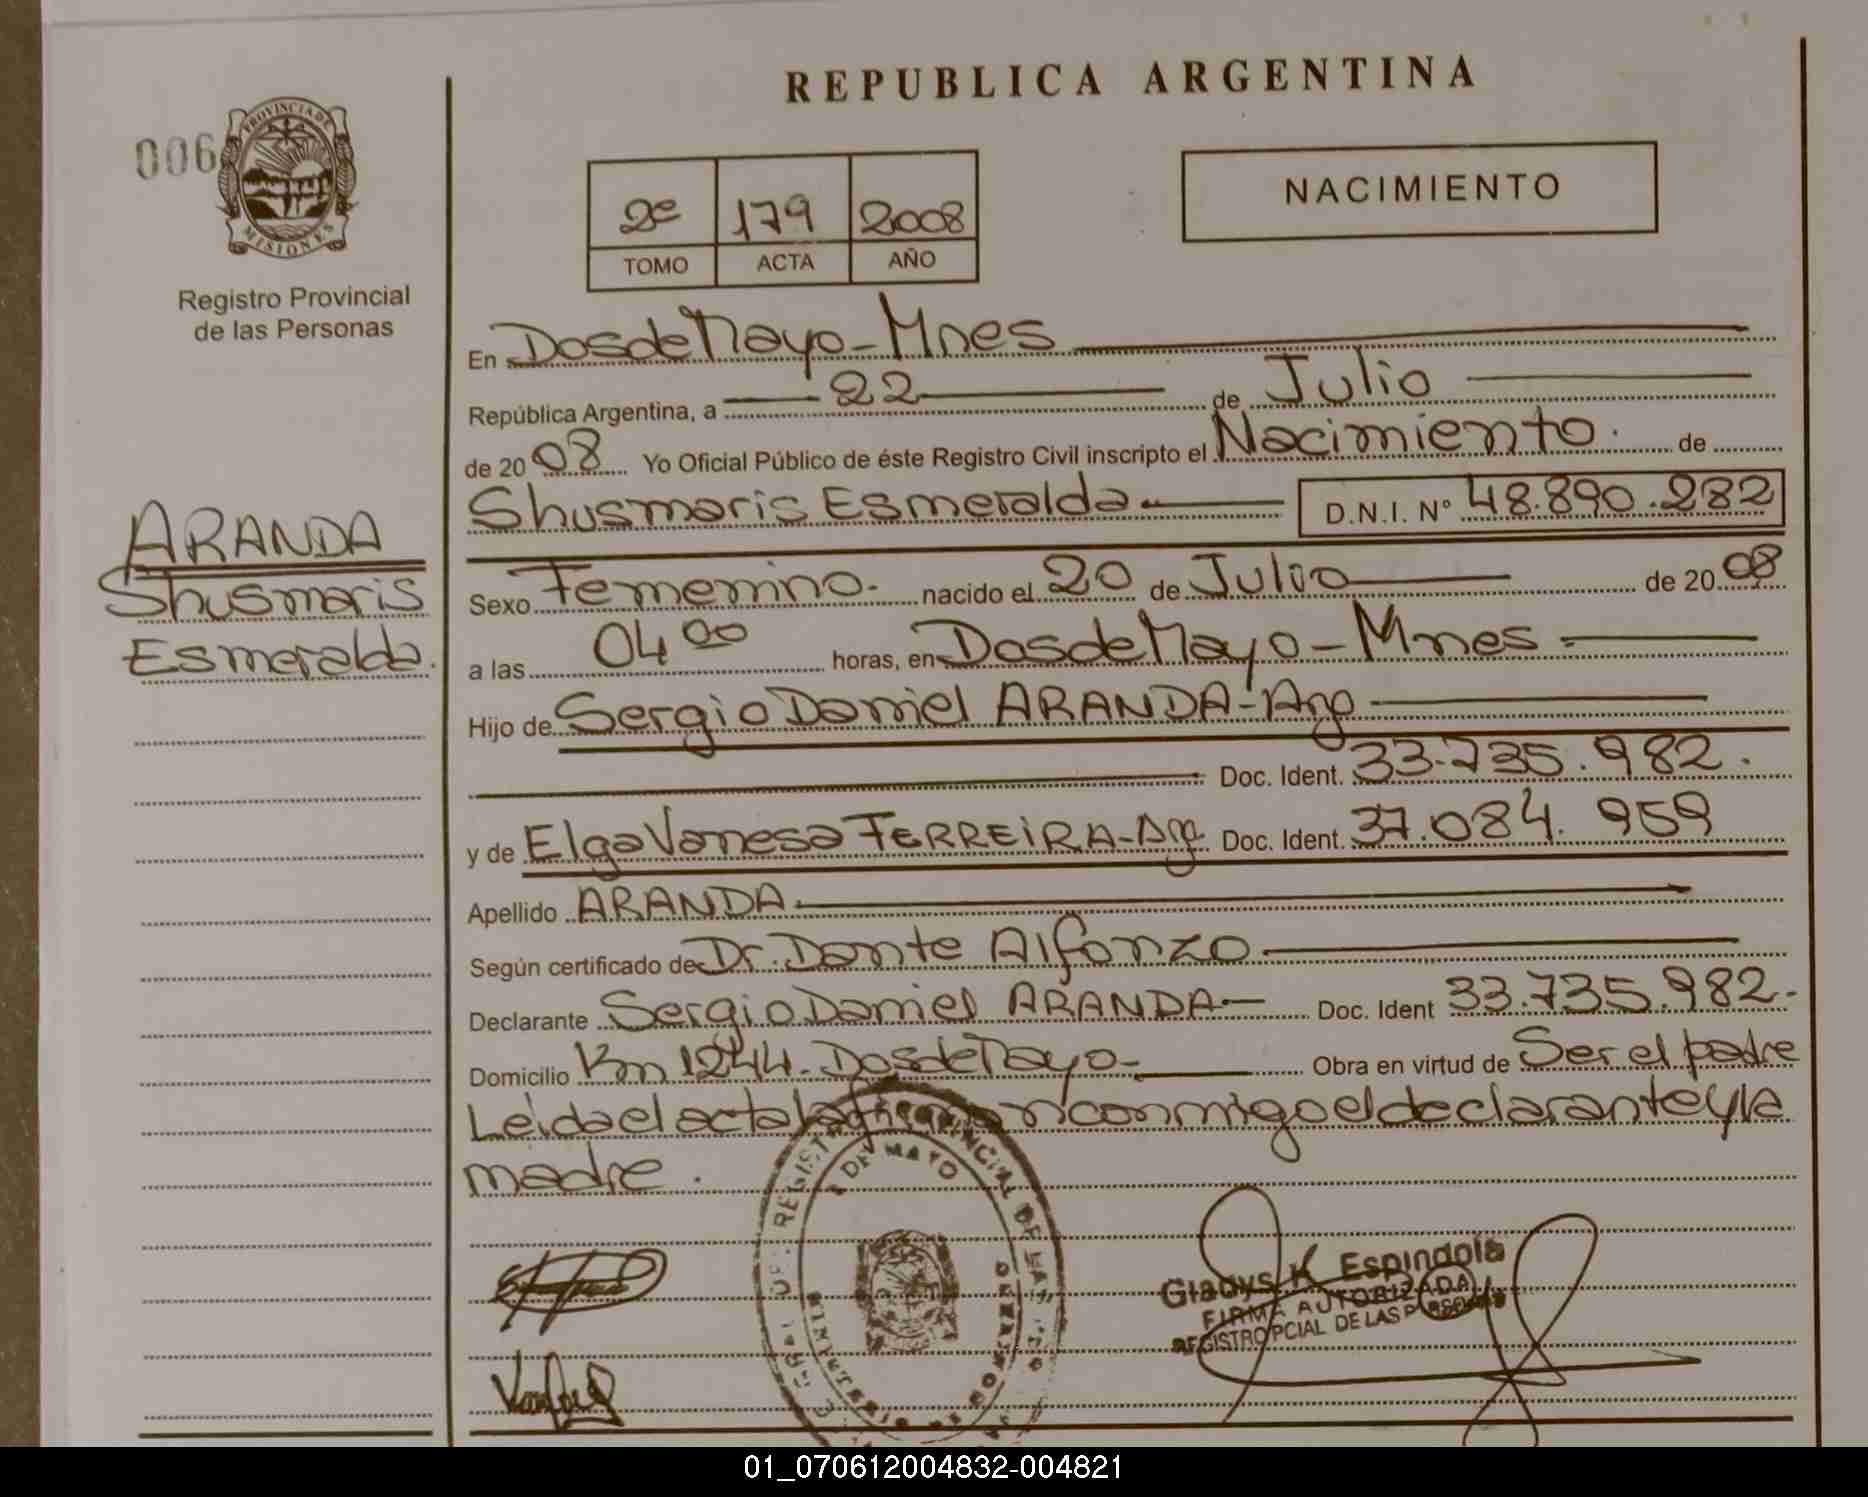 REPUBLICA ARGENTINA
006
PROVINCIA DE
MISIONES
Registro Provincial
de las Personas
2º 179 2008
TOMO ACTA AÑO
NACIMIENTO
En Dos de Mayo - Mnes
República Argentina, a 22 de Julio
de 2008 Yo Oficial Público de éste Registro Civil inscripto el Nacimiento. de
Shusmaris Esmeralda D.N.I. Nº 48.890.282
ARANDA
Shusmaris
Esmeralda.
Sexo Femenino. nacido el 20 de Julio de 2008
a las 04 00 horas, en Dos de Mayo - Mnes
Hijo de Sergio Daniel ARANDA - Arg
Doc. Ident. 33.735.982.
y de Elga Vanesa FERREIRA - Arg. Doc. Ident. 37.084.959
Apellido ARANDA
Según certificado de Dr. Dante Alfonzo
Declarante Sergio Daniel ARANDA Doc. Ident 33.735.982.
Domicilio Km 1244. Dos de Mayo Obra en virtud de Ser el padre
Leida el acta la conmigo el declarante y la
madre.
DE MAYO
Gladys K Espindola
FIRMA AUTORIZADA
REGISTRO PCIAL DE LAS PERSONAS
01_070612004832-004821